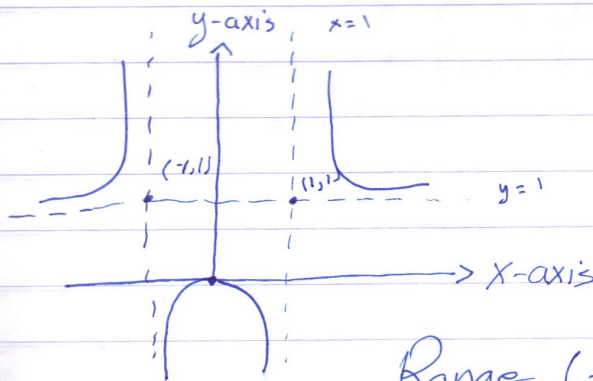 y-axis x=1
(-1,1) (1,1)
y=1
x-axis
Range (